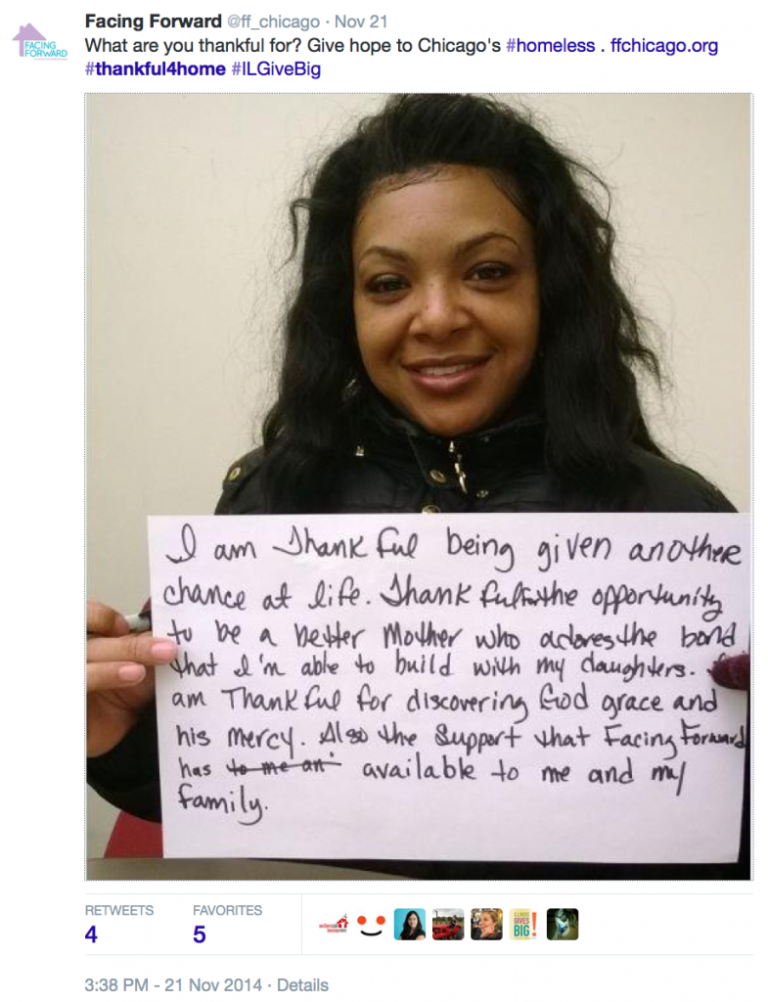 Facing Forward @ff_chicago · Nov 21
FACING
FORWARD
What are you thankful for? Give hope to Chicago's #homeless . ffchicago.org
#thankful4home #ILGiveBig
I am Thankful being given another
chance at life. Thankful for the opportunity
to be a better Mother who adores the bond
that I'm able to build with my daughters. I
am Thankful for discovering God grace and
his mercy. Also the Support that Facing Forward
has to me an available to me and my
family.
RETWEETS
FAVORITES
4
5
ILLINOIS
GIVES
BIG!
3:38 PM - 21 Nov 2014 · Details